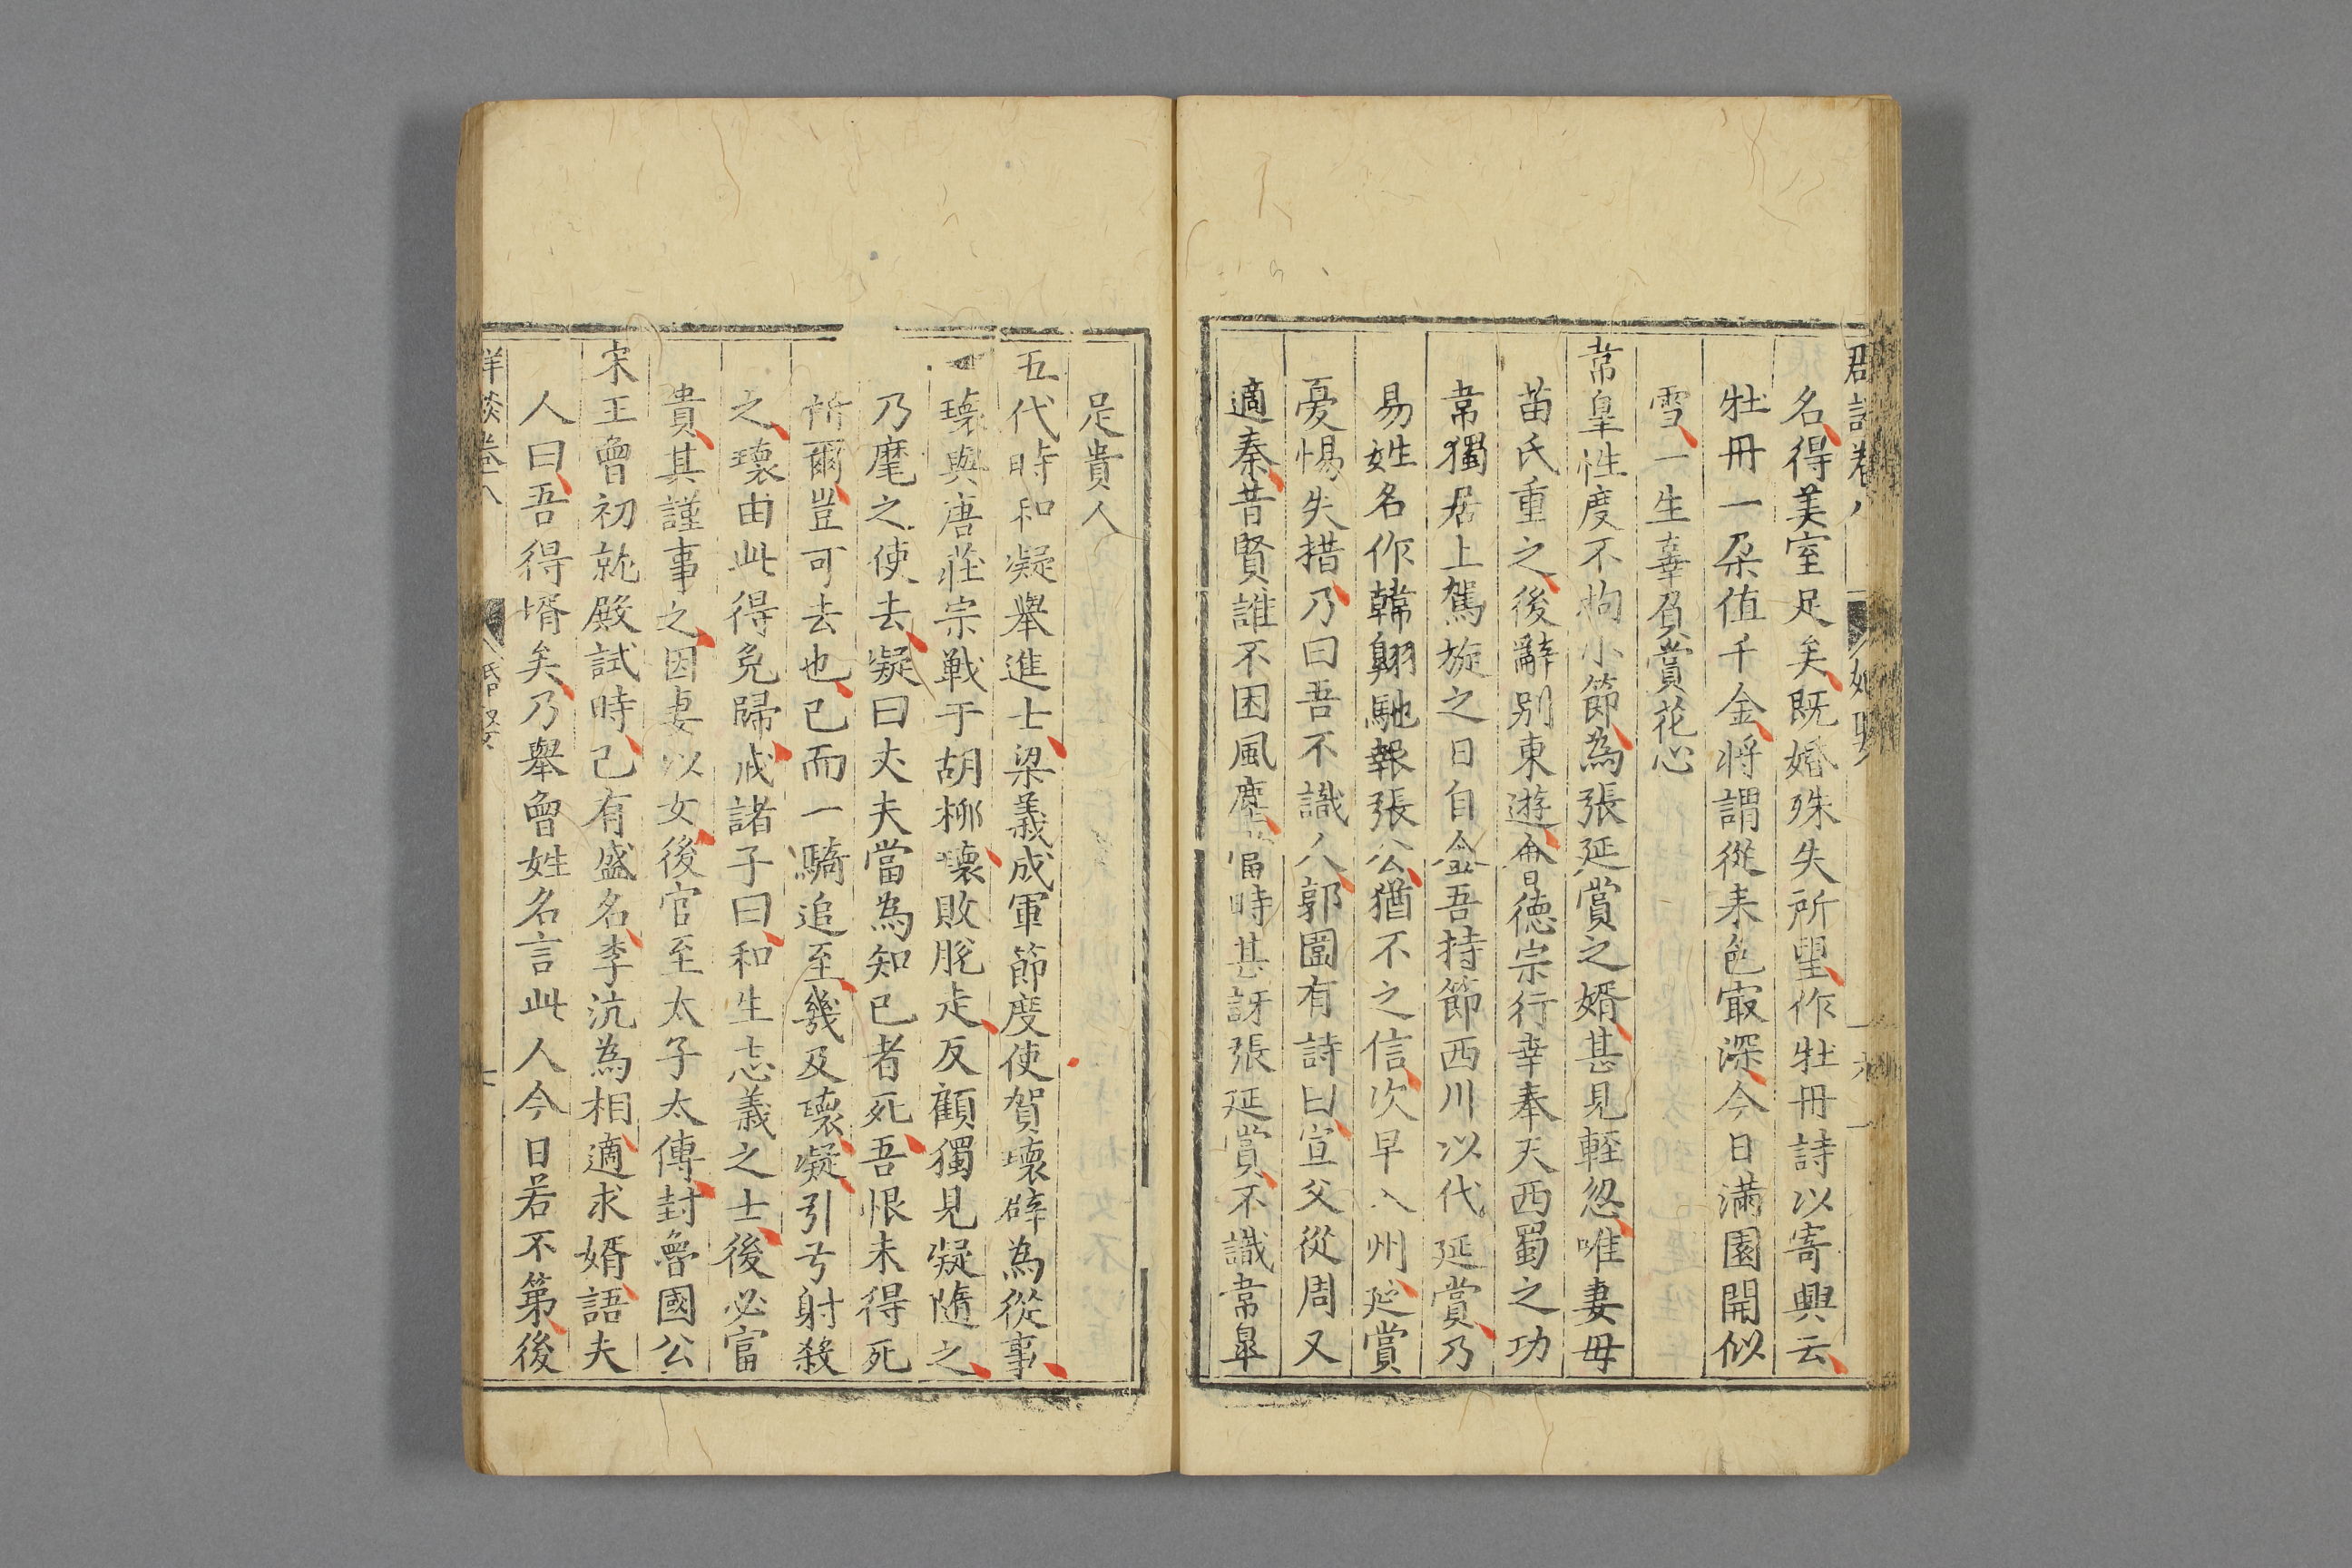 名得美室足矣既婚殊失所望作牡丹詩以寄興云
牡丹一朶值千金將謂從来色㝡深今日滿園開似
雪一生辜負賞花心
韋皐性度不拘小節為張延賞之婿甚見輕忽唯妻母
苗氏重之後辭别東遊會德宗行幸奉天西蜀之功
韋獨居上駕旋之日自金吾持節西川以代延賞乃
易姓名作韓翺馳報張公猶不之信次早入州延賞
憂惕失措乃曰吾不識人郭圍有詩曰宣父從周又
適秦昔賢誰不困風塵當時甚訝張延賞不識韋皐
足貴人
五代時和凝舉進士梁義成軍節度使賀瓌辟為從事
瓌與唐莊宗戰于胡栁瓌敗脫走反顧獨見凝隨之
乃麾之使去凝曰丈夫當為知己者死吾恨未得死
所爾豈可去也已而一騎追至幾及瓌凝引弓射殺
之瓌由此得免歸戒諸子曰和生志義之士後必富
貴其謹事之因妻以女後官至太子太傅封魯國公
宋王曾初就殿試時已有盛名李沆為相適求婿語夫
人曰吾得壻矣乃舉曾姓名言此人今日若不第後